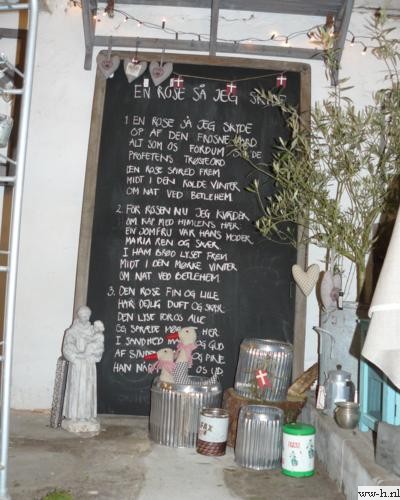 EN ROSE SÅ JEG SKYDE
1. EN ROSE SÅ JEG SKYDE
OP AF DEN FROSNE JORD
ALT SOM OS FORDUM
PROFETENS TRØSTEORD
DEN ROSE SPIRED FREM
MIDT I DEN KOLDE VINTER
OM NAT VED BETLEHEM
2. FOR ROSEN NU JEG KVÆDER
OM KAP MED HIMLENS HÆR
EN JOMFRU VAR HANS MODER
MARIA REN OG SKÆR
I HAM BRØD LYSET FREM
MIDT I DEN MØRKE VINTER
OM NAT VED BETLEHEM
3. DEN ROSE FIN OG LILLE
HAR DEJLIG DUFT OG SKÆR
DEN LYSE FOR OS ALLE
OG SPRÆDE HER
I SANDHED OG GUD
AF OG PINE
HAN OS UD
ww-h.nl